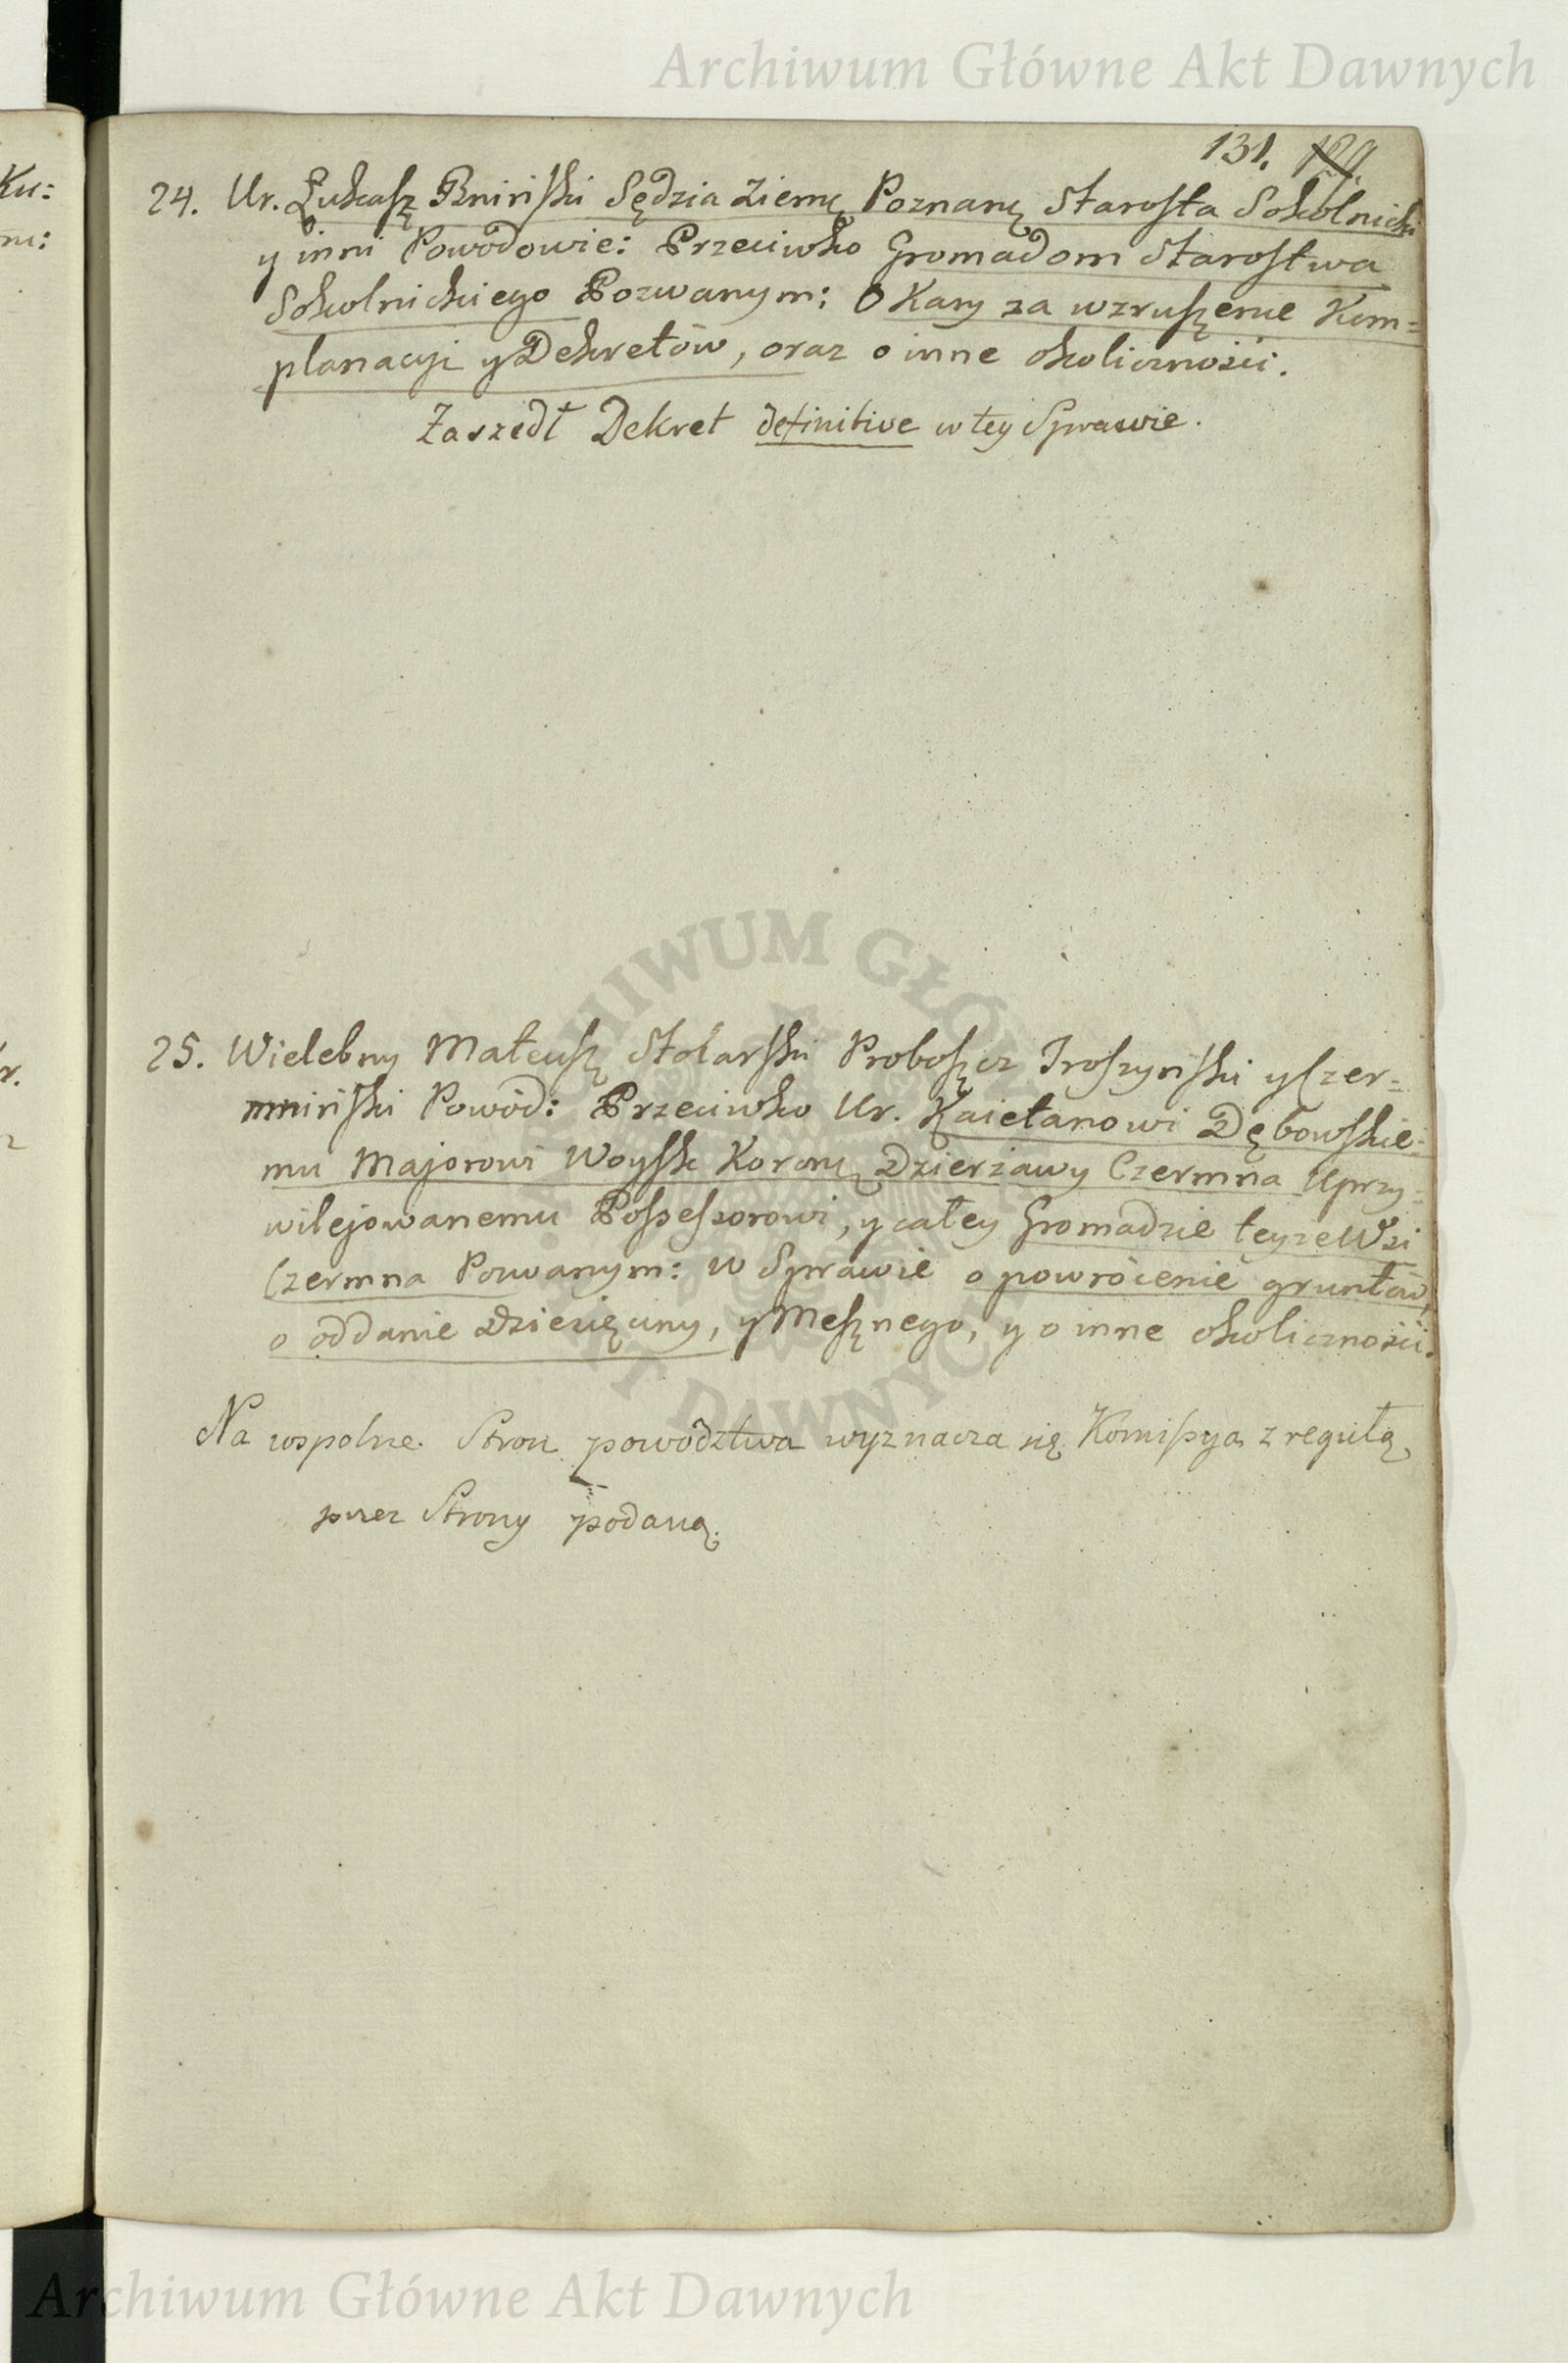 Archiwum Główne Akt Dawnych
131.
24. Ur. Łukasz Bniński Sędzia Ziemę Poznanę Starosta Sokolnicki
y inni Powodowie: Przeciwko Gromadom Starostwa
Sokolnickiego Pozwanym: O Kary za wzruszenie Kom=
planacyi y Dekretów, oraz o inne okoliczności.
Zaszedł Dekret definitive w tey Sprawie.
25. Wielebny Mateusz Stolarski Proboszcz Troszyński y Czer=
miński Powód: Przeciwko Ur. Kaietanowi Dębowskie=
mu Majorowi Woysk Koronę Dzierżawy Czermna Uprzy=
wilejowanemu Possessorowi, y całey Gromadzie teyże Wsi
Czermna Pozwanym: w Sprawie o powrócenie gruntów,
o oddanie Dziesięciny, y Mesznego, y o inne okoliczności.
Na wspolne Stron powodztwa wyznacza się Komissya z regułą
przez Strony podaną.
Archiwum Główne Akt Dawnych